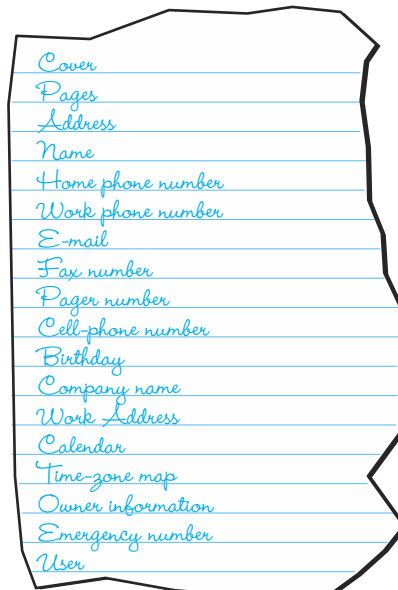 Cover
Pages
Address
Name
Home phone number
Work phone number
E-mail
Fax number
Pager number
Cell-phone number
Birthday
Company name
Work Address
Calendar
Time-zone map
Owner information
Emergency number
User